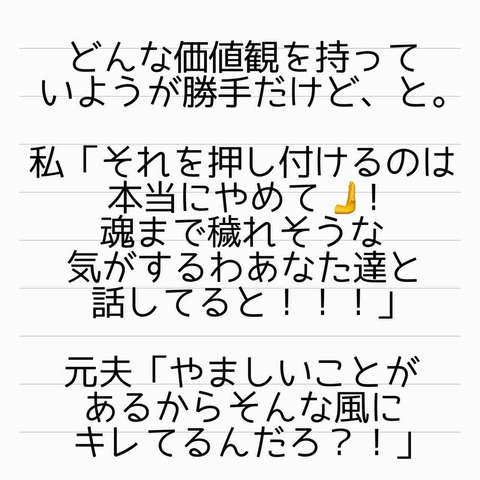 どんな価値観を持って
いようが勝手だけど、と。
私「それを押し付けるのは
本当にやめて🫷！
魂まで穢れそうな
気がするわあなた達と
話してると！！！」
元夫「やましいことが
あるからそんな風に
キレてるんだろ？！」